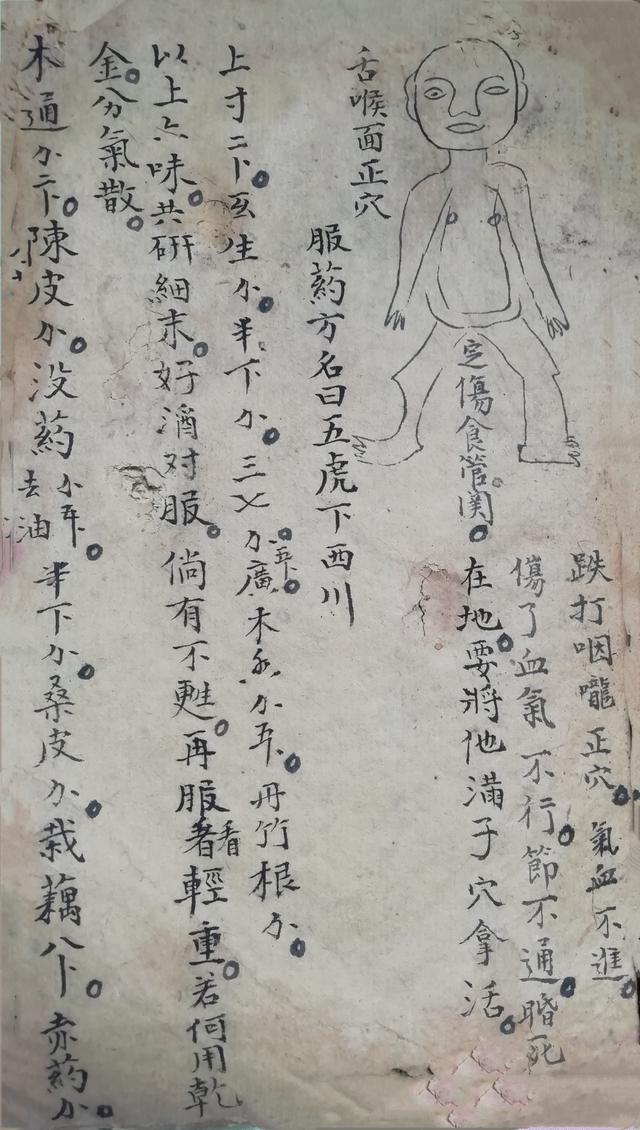 舌喉面正穴
定傷食管関
跌打咽嚨正穴氣血不進
傷了血氣不行節不通昏死
在地要將他滿子穴拿活
服药方名曰五虎下西川
上寸二卜玄生分半下分三乂分五卜廣木香分五卜丹竹根分
以上六味共研細末好酒对服倘有不甦再服看輕重若何用乾
金分氣散
木通分二卜陳皮分没药分五卜去油半下分桑皮分栽藕八卜赤药分